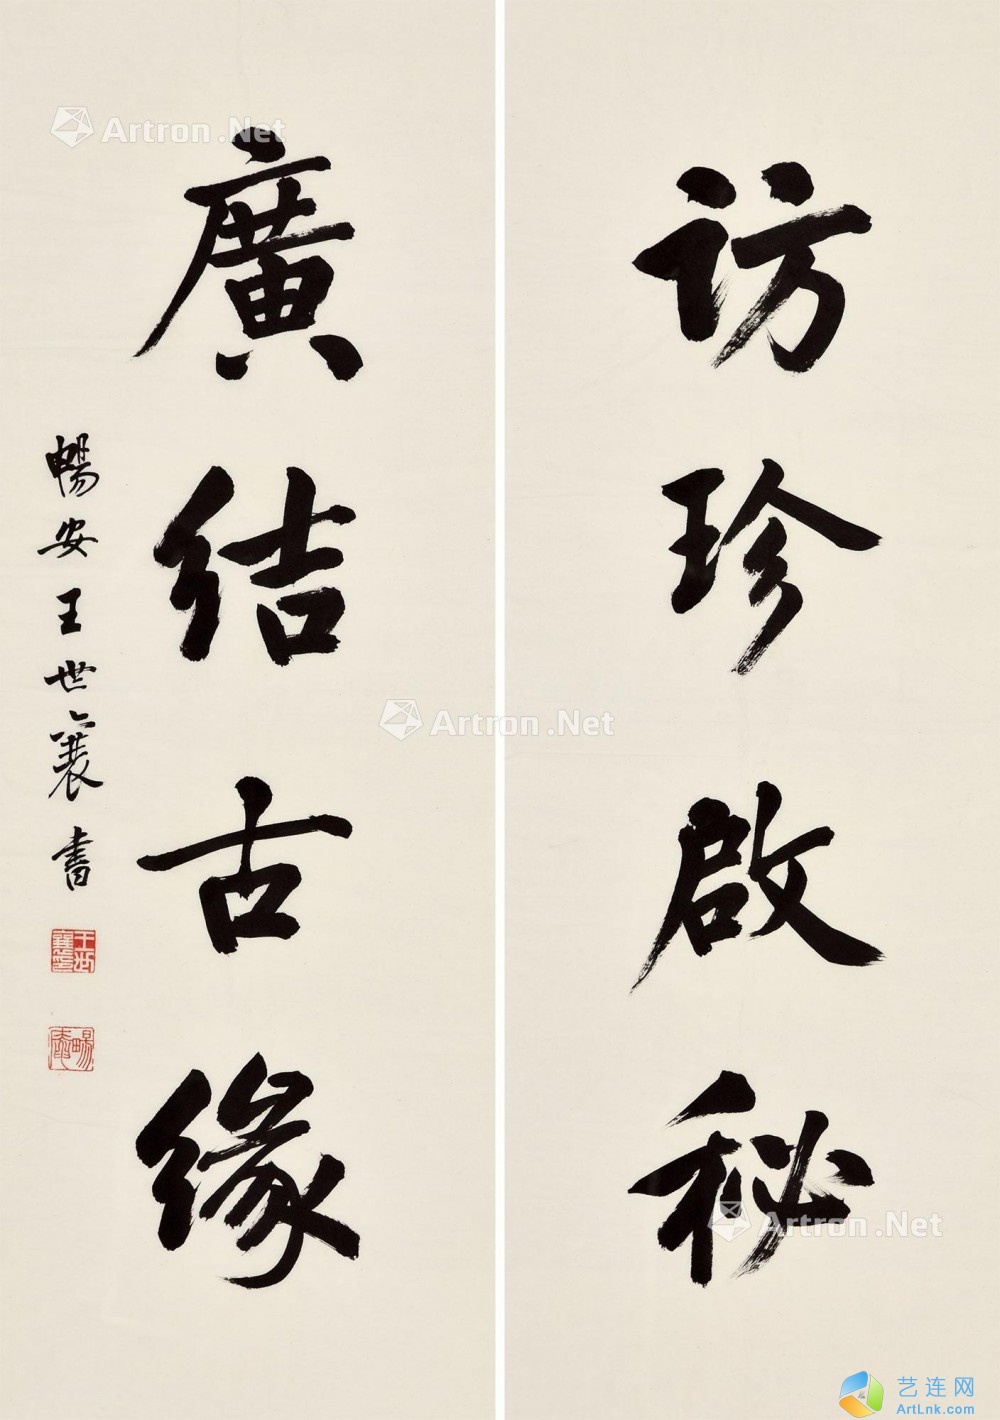 访珍啟秘
廣結古緣
暢安王世襄書
王世襄璽
暢安
Artron.Net
Artron.Net
Artron.Net
艺连网
ArtLnk.com